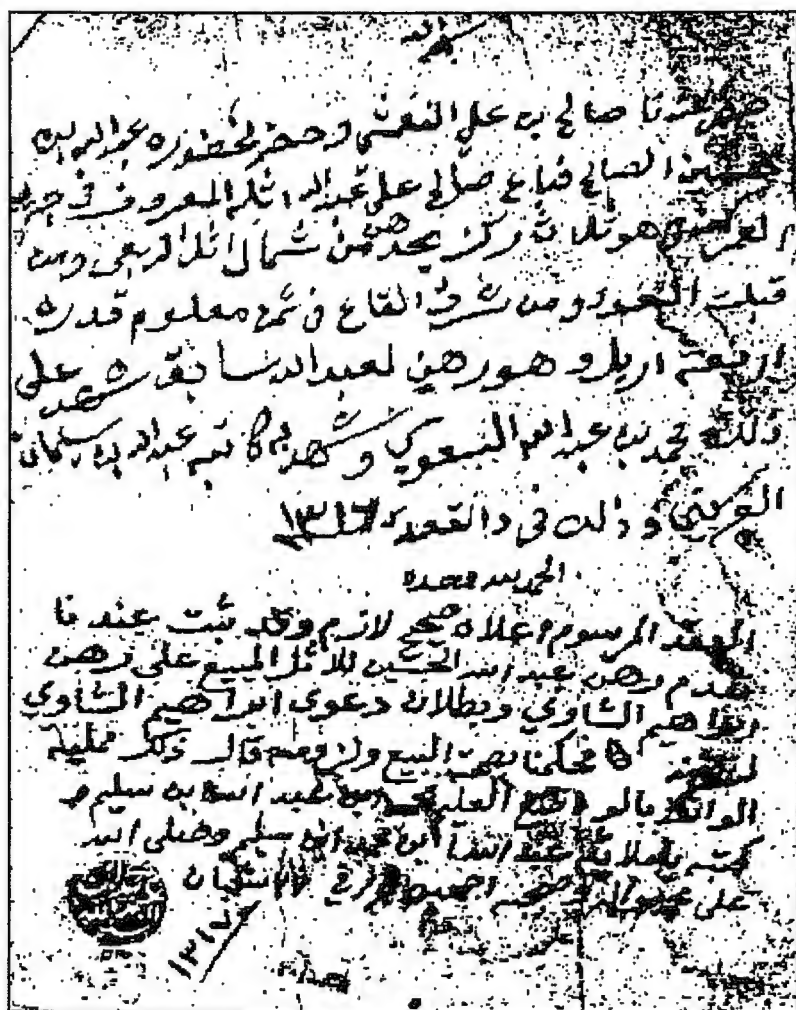 حضر عندنا صالح بن علي النغيمشي وحضر لحضوره عبدالله بن
حسين الصالح فباع صالح على عبدالله اثله المعروف في
وهو ثلاث ركز يحدهن من شمال اثل الربعي ومن
قبلت النفود ومن شرق القاع في ثمن معلوم قدره
اربعة اريل وهو رهين لعبدالله سابق شهد على
ذلك محمد بن عبدالله السعوي وشهد به كاتبه عبدالله بن سليمان
العريني وذلك في ذالقعدة ١٣١٦
الحمد لله وحده
العقد المرسوم اعلاه صحيح لازم وقد ثبت عندنا
تقدم رهن عبدالله الحسين للاثل المبيع على رهن
ابراهيم الشاوي وبطلان دعوى ابراهيم الشاوي
حكمنا بصحة البيع ولزومه قال ذلك ممليه
الواثق بالله محمد بن عبدالله بن سليم
كتبه باملائه عبدالله ابن محمد ابن سليم وصلى الله
على محمد واله وصحبه اجمعين
١٣١٧